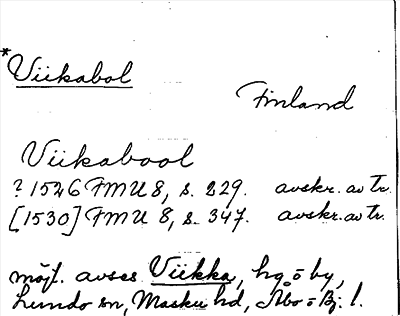 *Viikabol
Finland
Viikabool
? 1526 FMU 8, s. 229. avskr. av tr.
[1530] FMU 8, s. 347. avskr. av tr.
möjl. avses Viikka, hg o by,
Lundo sn, Masku hd, Åbo o Bj. l.